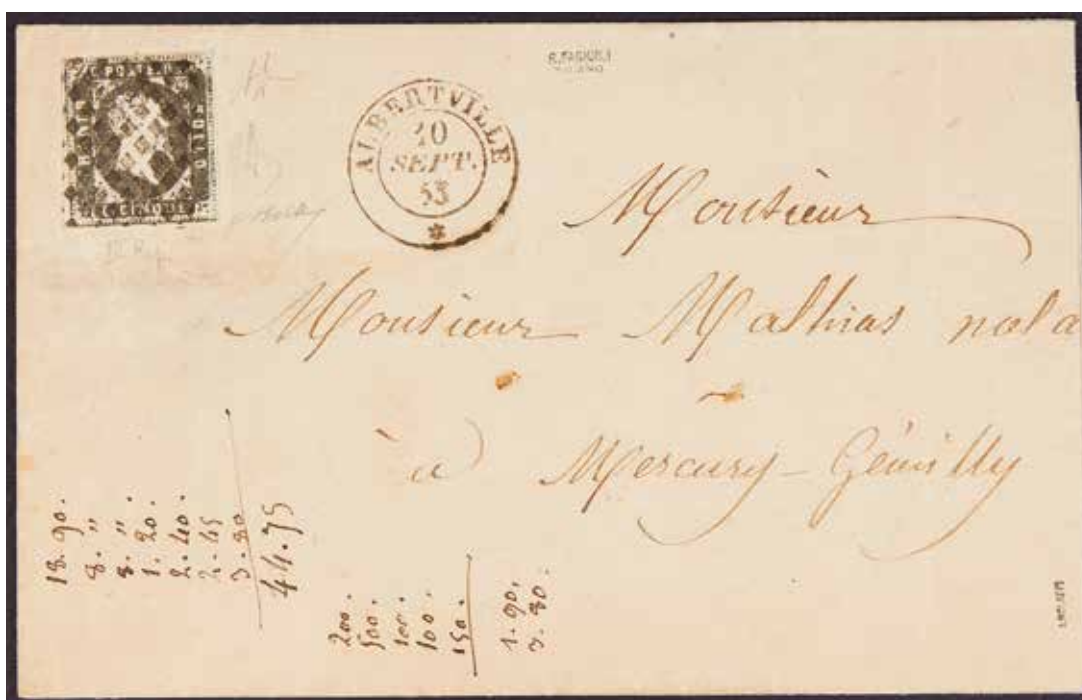 C. POSTE
BOLLO
C. CINQUE
ALBERTVILLE
10
SEPT.
53
MILANO
Monsieur
Monsieur Mathias
à Mercury-Gémilly
18.90.
8. "
8. "
1.20.
2.40.
2.45
3.80
44.75
200.
500.
100.
100.
150.
1.90.
3.80.